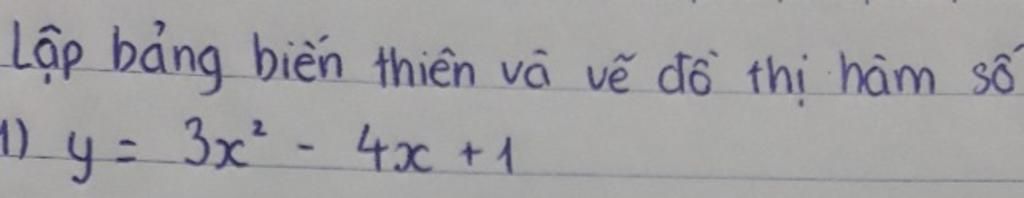 Lập bảng biến thiên và vẽ đồ thị hàm số
1) y = 3x² - 4x + 1